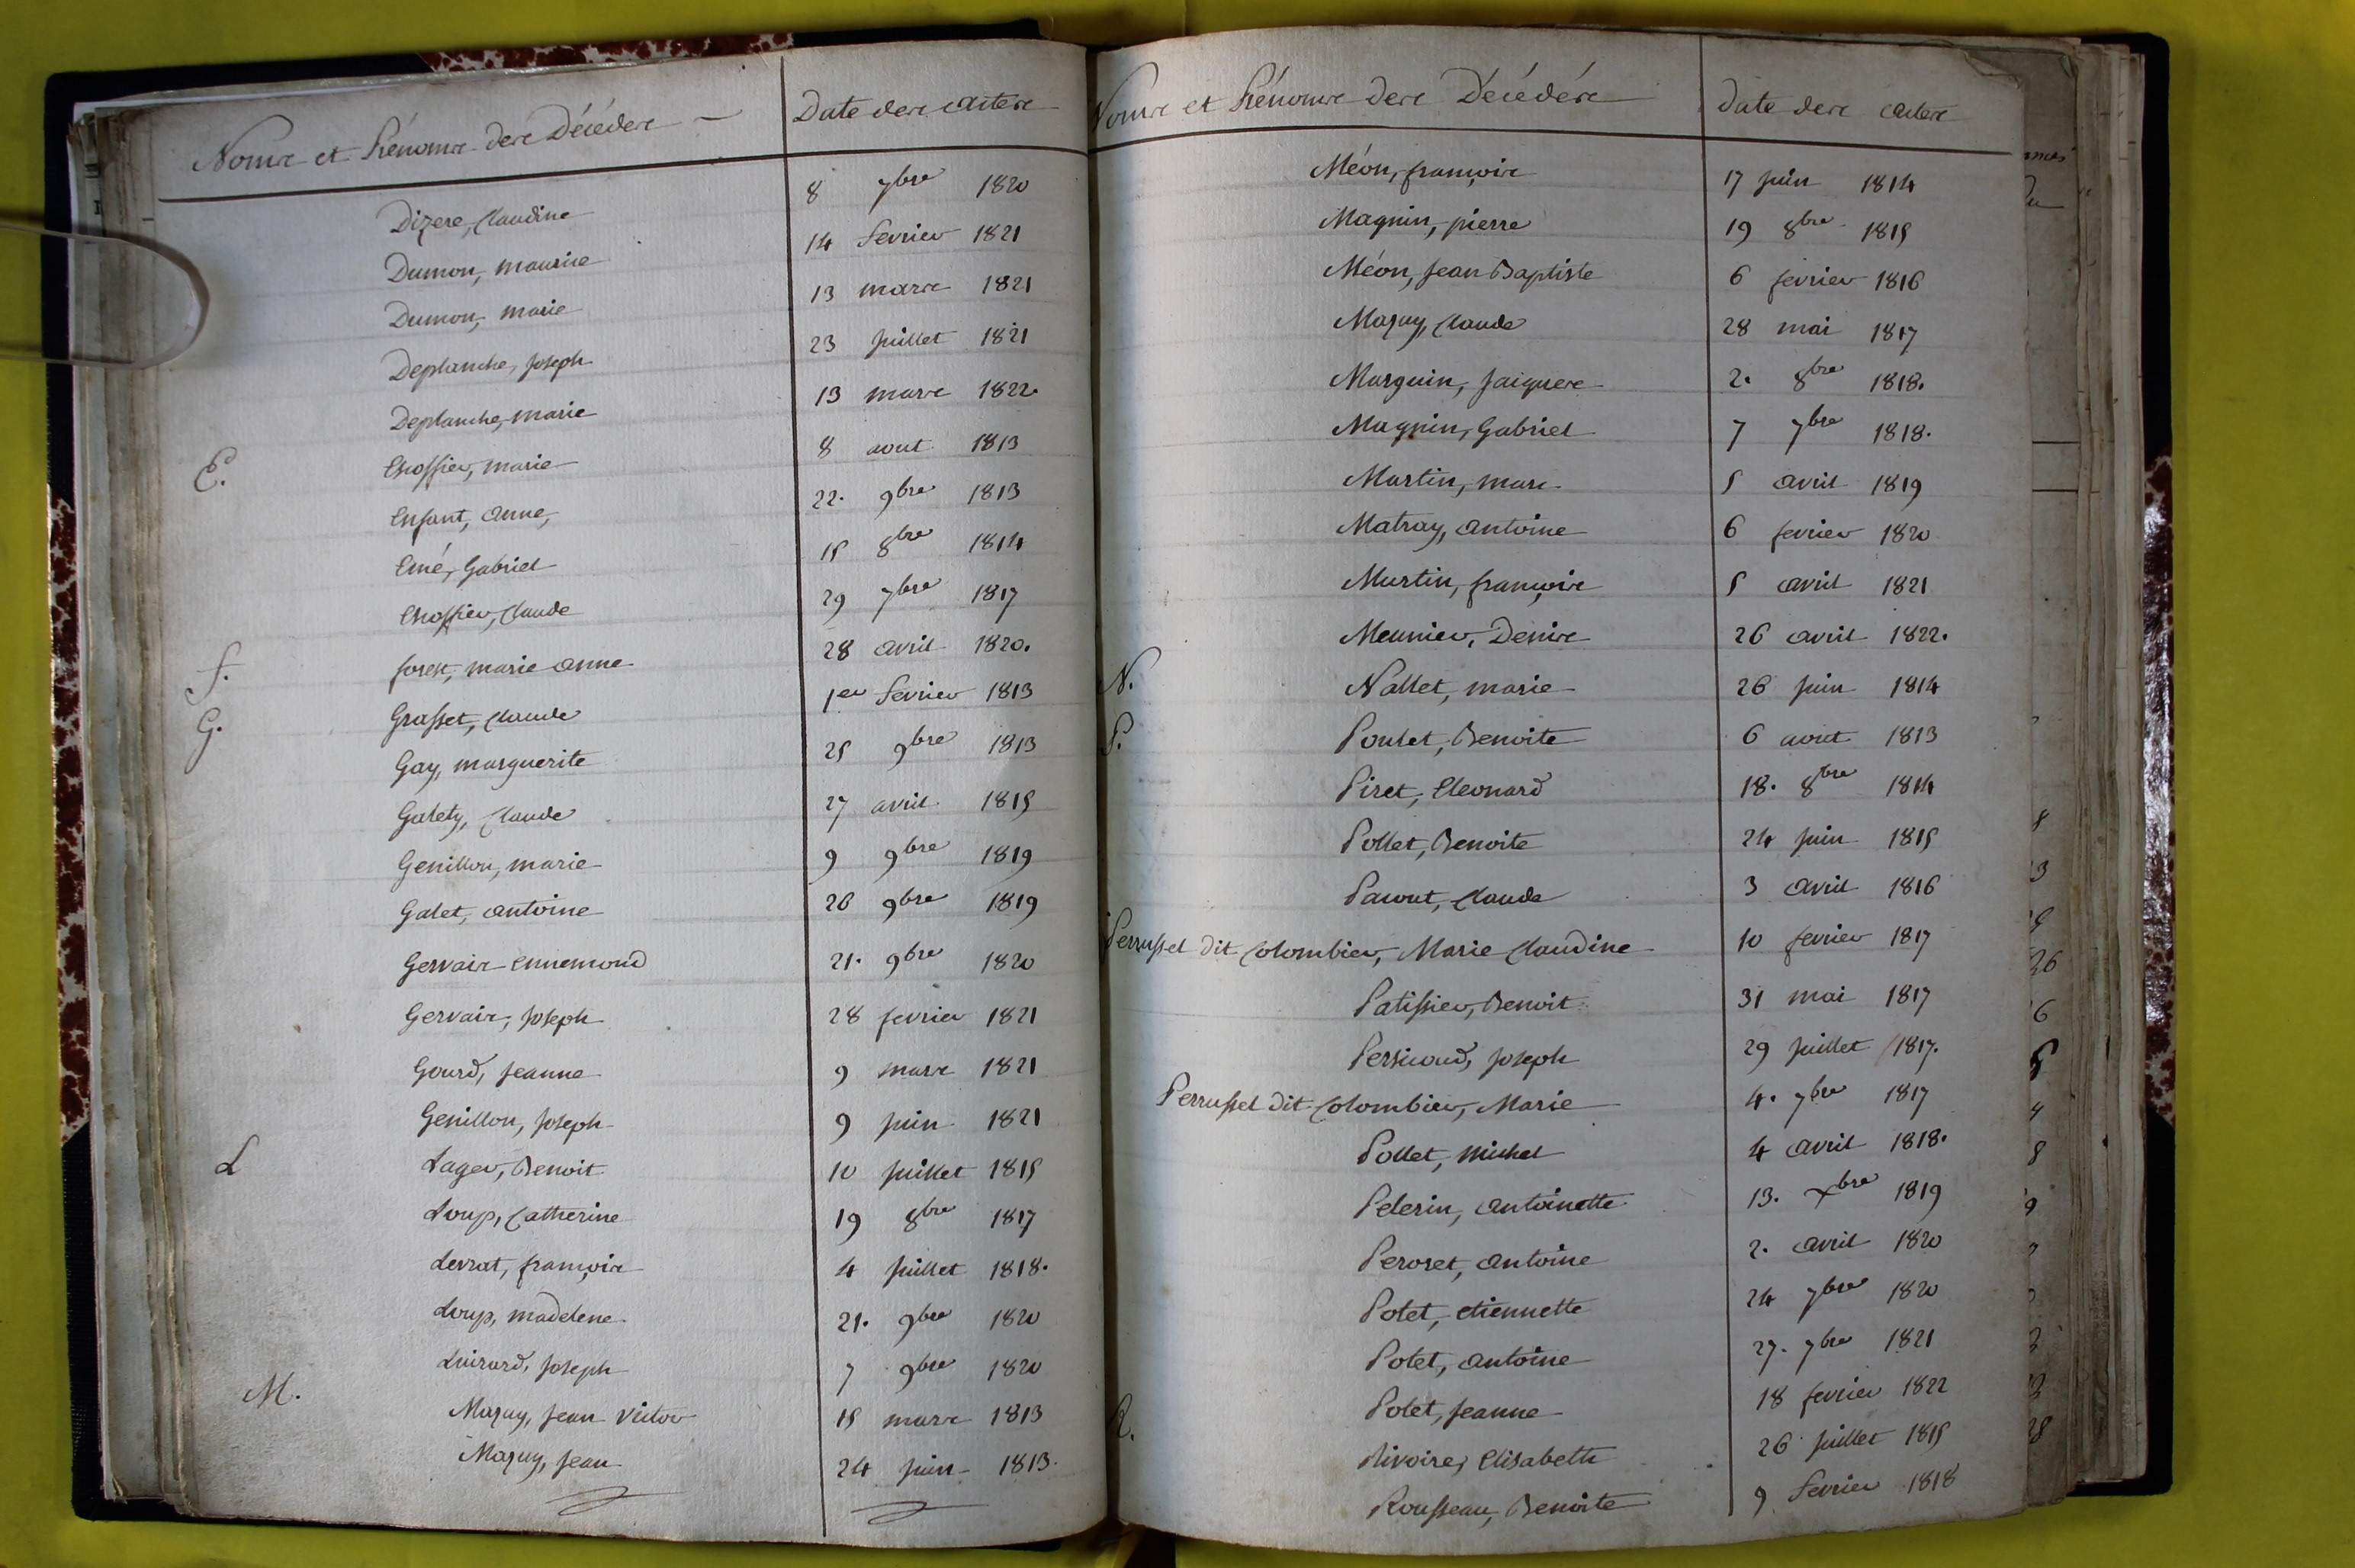 Noms et Prénoms des Décédés — Date des actes
Dizere, Claudine 8 7bre 1820
Dumon, maurice 14 fevrier 1821
Dumon, marie 13 mars 1821
Deplanche, Joseph 23 Juillet 1821
Deplanche, marie 13 mars 1822.
E. Essoffier, marie 8 aout 1813
Enfant, anne, 22. 9bre 1813
Emé, Gabriel 15 8bre 1814
Essoffier, Claude 29 7bre 1817
f. forest, marie anne 28 avril 1820.
G. Grasset, Claude 1er fevrier 1813
Gay, marguerite 25 9bre 1813
Galety, Claude 27 avril 1815
Genillon, marie 9 9bre 1819
Galet, antoine 26 9bre 1819
Gervais ennemond 21. 9bre 1820
Gervais, Joseph 28 fevrier 1821
Gourd, Jeanne 9 mars 1821
Genillon, Joseph 9 Juin 1821
L Lager, Benoit 10 Juillet 1815
Loup, Catherine 19 8bre 1817
Levrat, françois 4 Juillet 1818.
Loup, madelene 21. 9bre 1820
Luirard, Joseph 7 9bre 1820
M. Mazuy, Jean Victor 15 mars 1813
Mazuy, Jean 24 Juin 1813.
Noms et Prénoms des Décédés Date des actes
Méon, françois 17 Juin 1814
Magnin, pierre 19 8bre 1815
Méon, Jean Baptiste 6 fevrier 1816
Mazuy, Claude 28 mai 1817
Marguin, Jaiques 2. 8bre 1818.
Magnin, Gabriel 7 7bre 1818.
Martin, marc 5 avril 1819
Matray, antoine 6 fevrier 1820
Martin, françois 5 avril 1821
Meunier, Denis 26 avril 1822.
N. Nallet, marie 26 Juin 1814
P. Poulet, Benoite 6 aout 1813
Piret, Eleonard 18. 8bre 1814
Pollet, Benoite 24 Juin 1815
Pacout, Claude 3 avril 1816
Perrussel dit Colombier, Marie Claudine 10 fevrier 1817
Patissier, Benoit 31 mai 1817
Persicoud, Joseph 29 Juillet 1817.
Perrussel dit Colombier, Marie 4. 7bre 1817
Pollet, Michel 4 avril 1818.
Pelerin, antoinette 13. Xbre 1819
Peroset, antoine 2. avril 1820
Polet, etiennette 24 7bre 1820
Polet, antoine 27. 7bre 1821
Polet, Jeanne 18 fevrier 1822
R. Rivoire, Elisabeth 26 Juillet 1815
Rousseau, Benoite 9 fevrier 1818